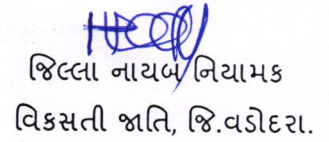 જિલ્લા નાયબ નિયામક
વિકસતી જાતિ, જિ.વડોદરા.